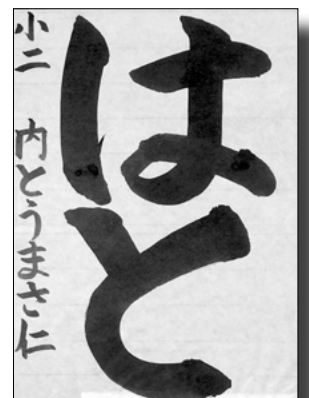 はと
小二 内とうまさ仁